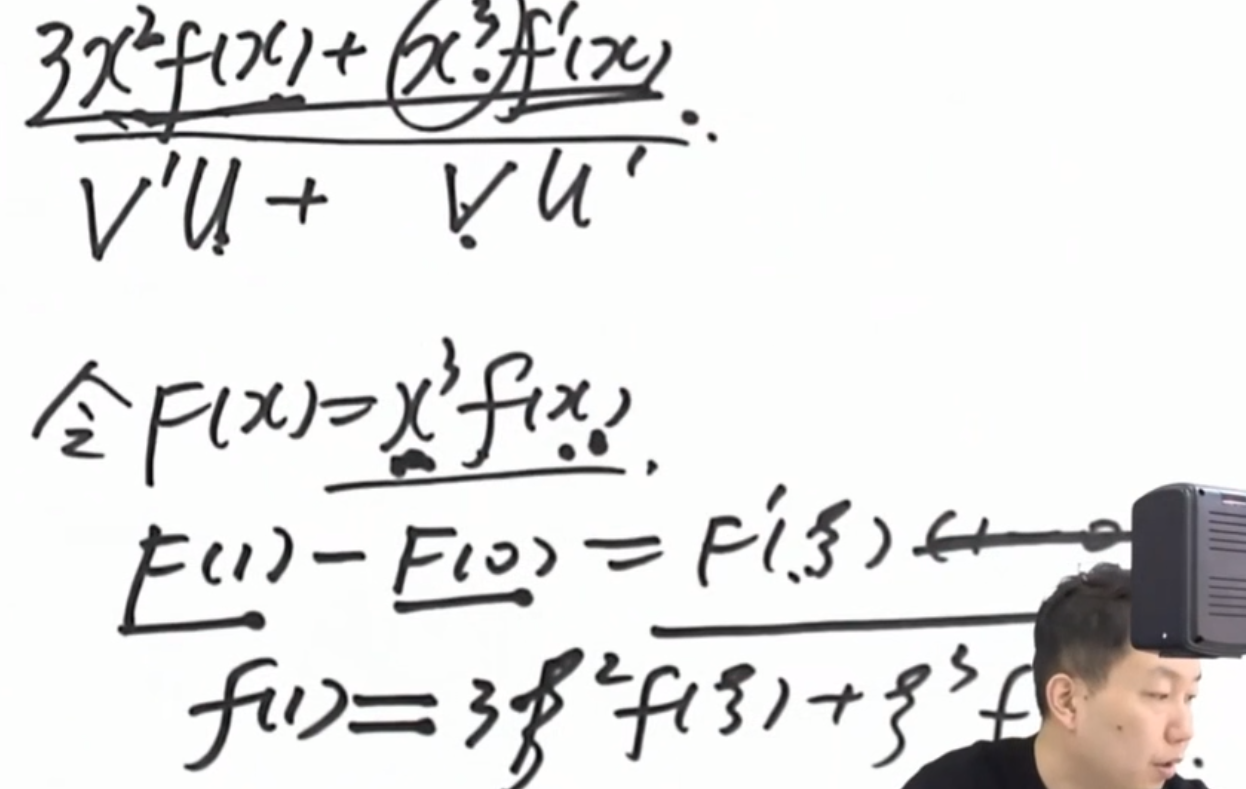 3x²f(x)+x³f'(x)
V'U+ VU'
令F(x)=x³f(x).
F(1)-F(0)=F'(ξ)(1-0
f(1)=3ξ²f(ξ)+ξ³f